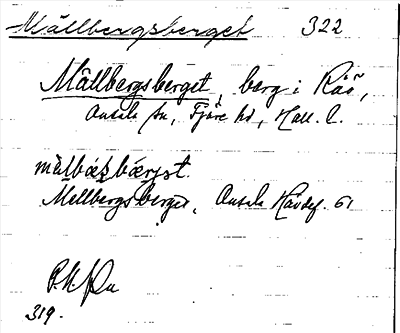 Mällbergsberget 322
Mällbergsberget, berg i Råö,
Onsala sn, Fjäre hd, Hall. l.
Mellbergsberget, Onsala Havdef. 61
319.